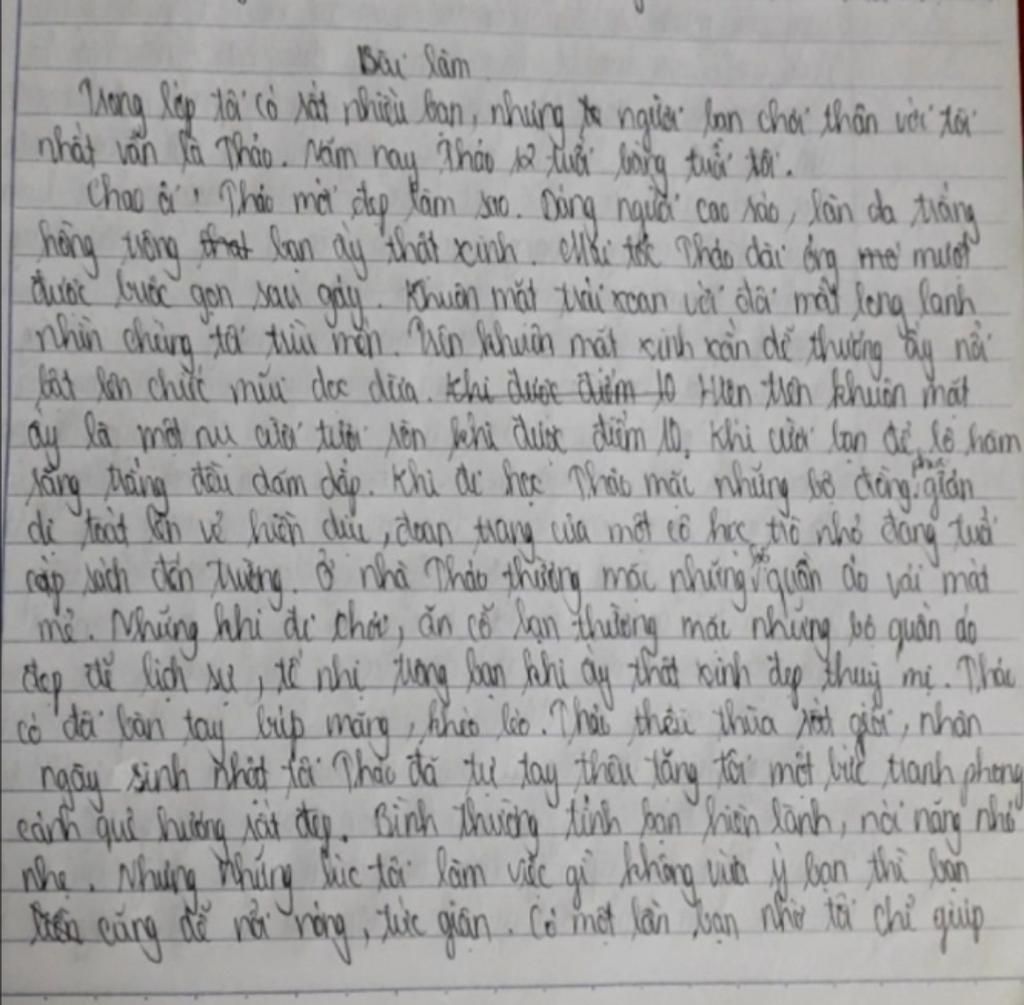 Bài làm
Trong lớp tôi có rất nhiều bạn, nhưng người bạn chơi thân với tôi
nhất vẫn là Thảo. Năm nay Thảo 12 tuổi bằng tuổi tôi.
Chao ôi! Thảo mới đẹp làm sao. Dáng người cao ráo, làn da trắng
hồng trông bạn ấy thật xinh. Mái tóc Thảo dài óng mơ mượt
được buộc gọn sau gáy. Khuôn mặt trái xoan với đôi mắt long lanh
nhìn chúng tôi trìu mến. Trên khuôn mặt xinh xắn dễ thương ấy nổi
bật lên chiếc mũi dọc dừa. Khi được điểm 10 Hiện trên khuôn mặt
ấy là một nụ cười tươi rói khi được điểm 10. Khi cười bạn để lộ hàm
răng trắng đều dăm dắp. Khi đi học Thảo mặc những bộ đồng phục giản
dị toát lên vẻ hiền dịu, đoan trang của một cô học trò nhỏ đang tuổi
cắp sách đến trường. Ở nhà Thảo thường mặc những bộ quần áo vải mát
mẻ. Những khi đi chơi, ăn cỗ bạn thường mặc những bộ quần áo
đẹp đẽ lịch sự, tế nhị trông bạn khi ấy thật xinh đẹp thuỳ mị. Thảo
có đôi bàn tay búp măng, khéo léo. Thảo thêu thùa rất giỏi, nhân
ngày sinh nhật tôi Thảo đã tự tay thêu tặng tôi một bức tranh phong
cảnh quê hương rất đẹp. Bình thường tính bạn hiền lành, nói năng nhỏ
nhẹ. Nhưng những lúc tôi làm việc gì không vừa ý bạn thì bạn
cũng dễ nổi nóng, tức giận. Có một lần bạn nhờ tôi chỉ giúp